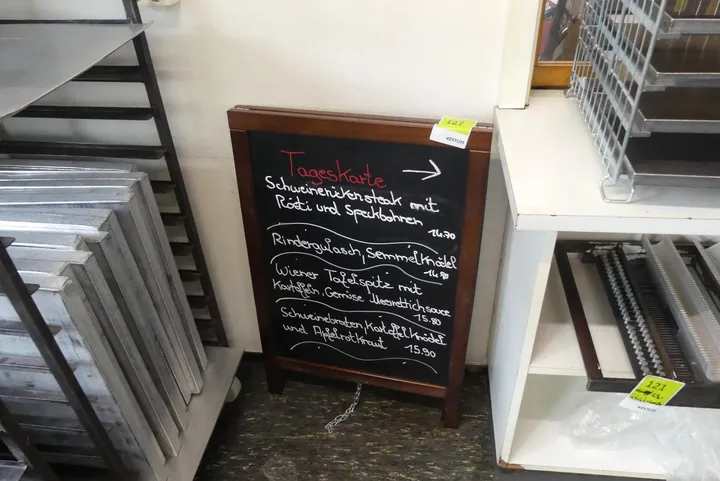 127
Tageskarte
Schweinerückensteak mit
Rösti und Speckbohnen
14.70
Rindergulasch, Semmelknödel
14.50
Wiener Tafelspitz mit
Kartoffeln, Gemüse Meerrettichsauce
15.80
Schweinebraten, Kartoffelknödel
und Apfelrotkraut 15.90
121